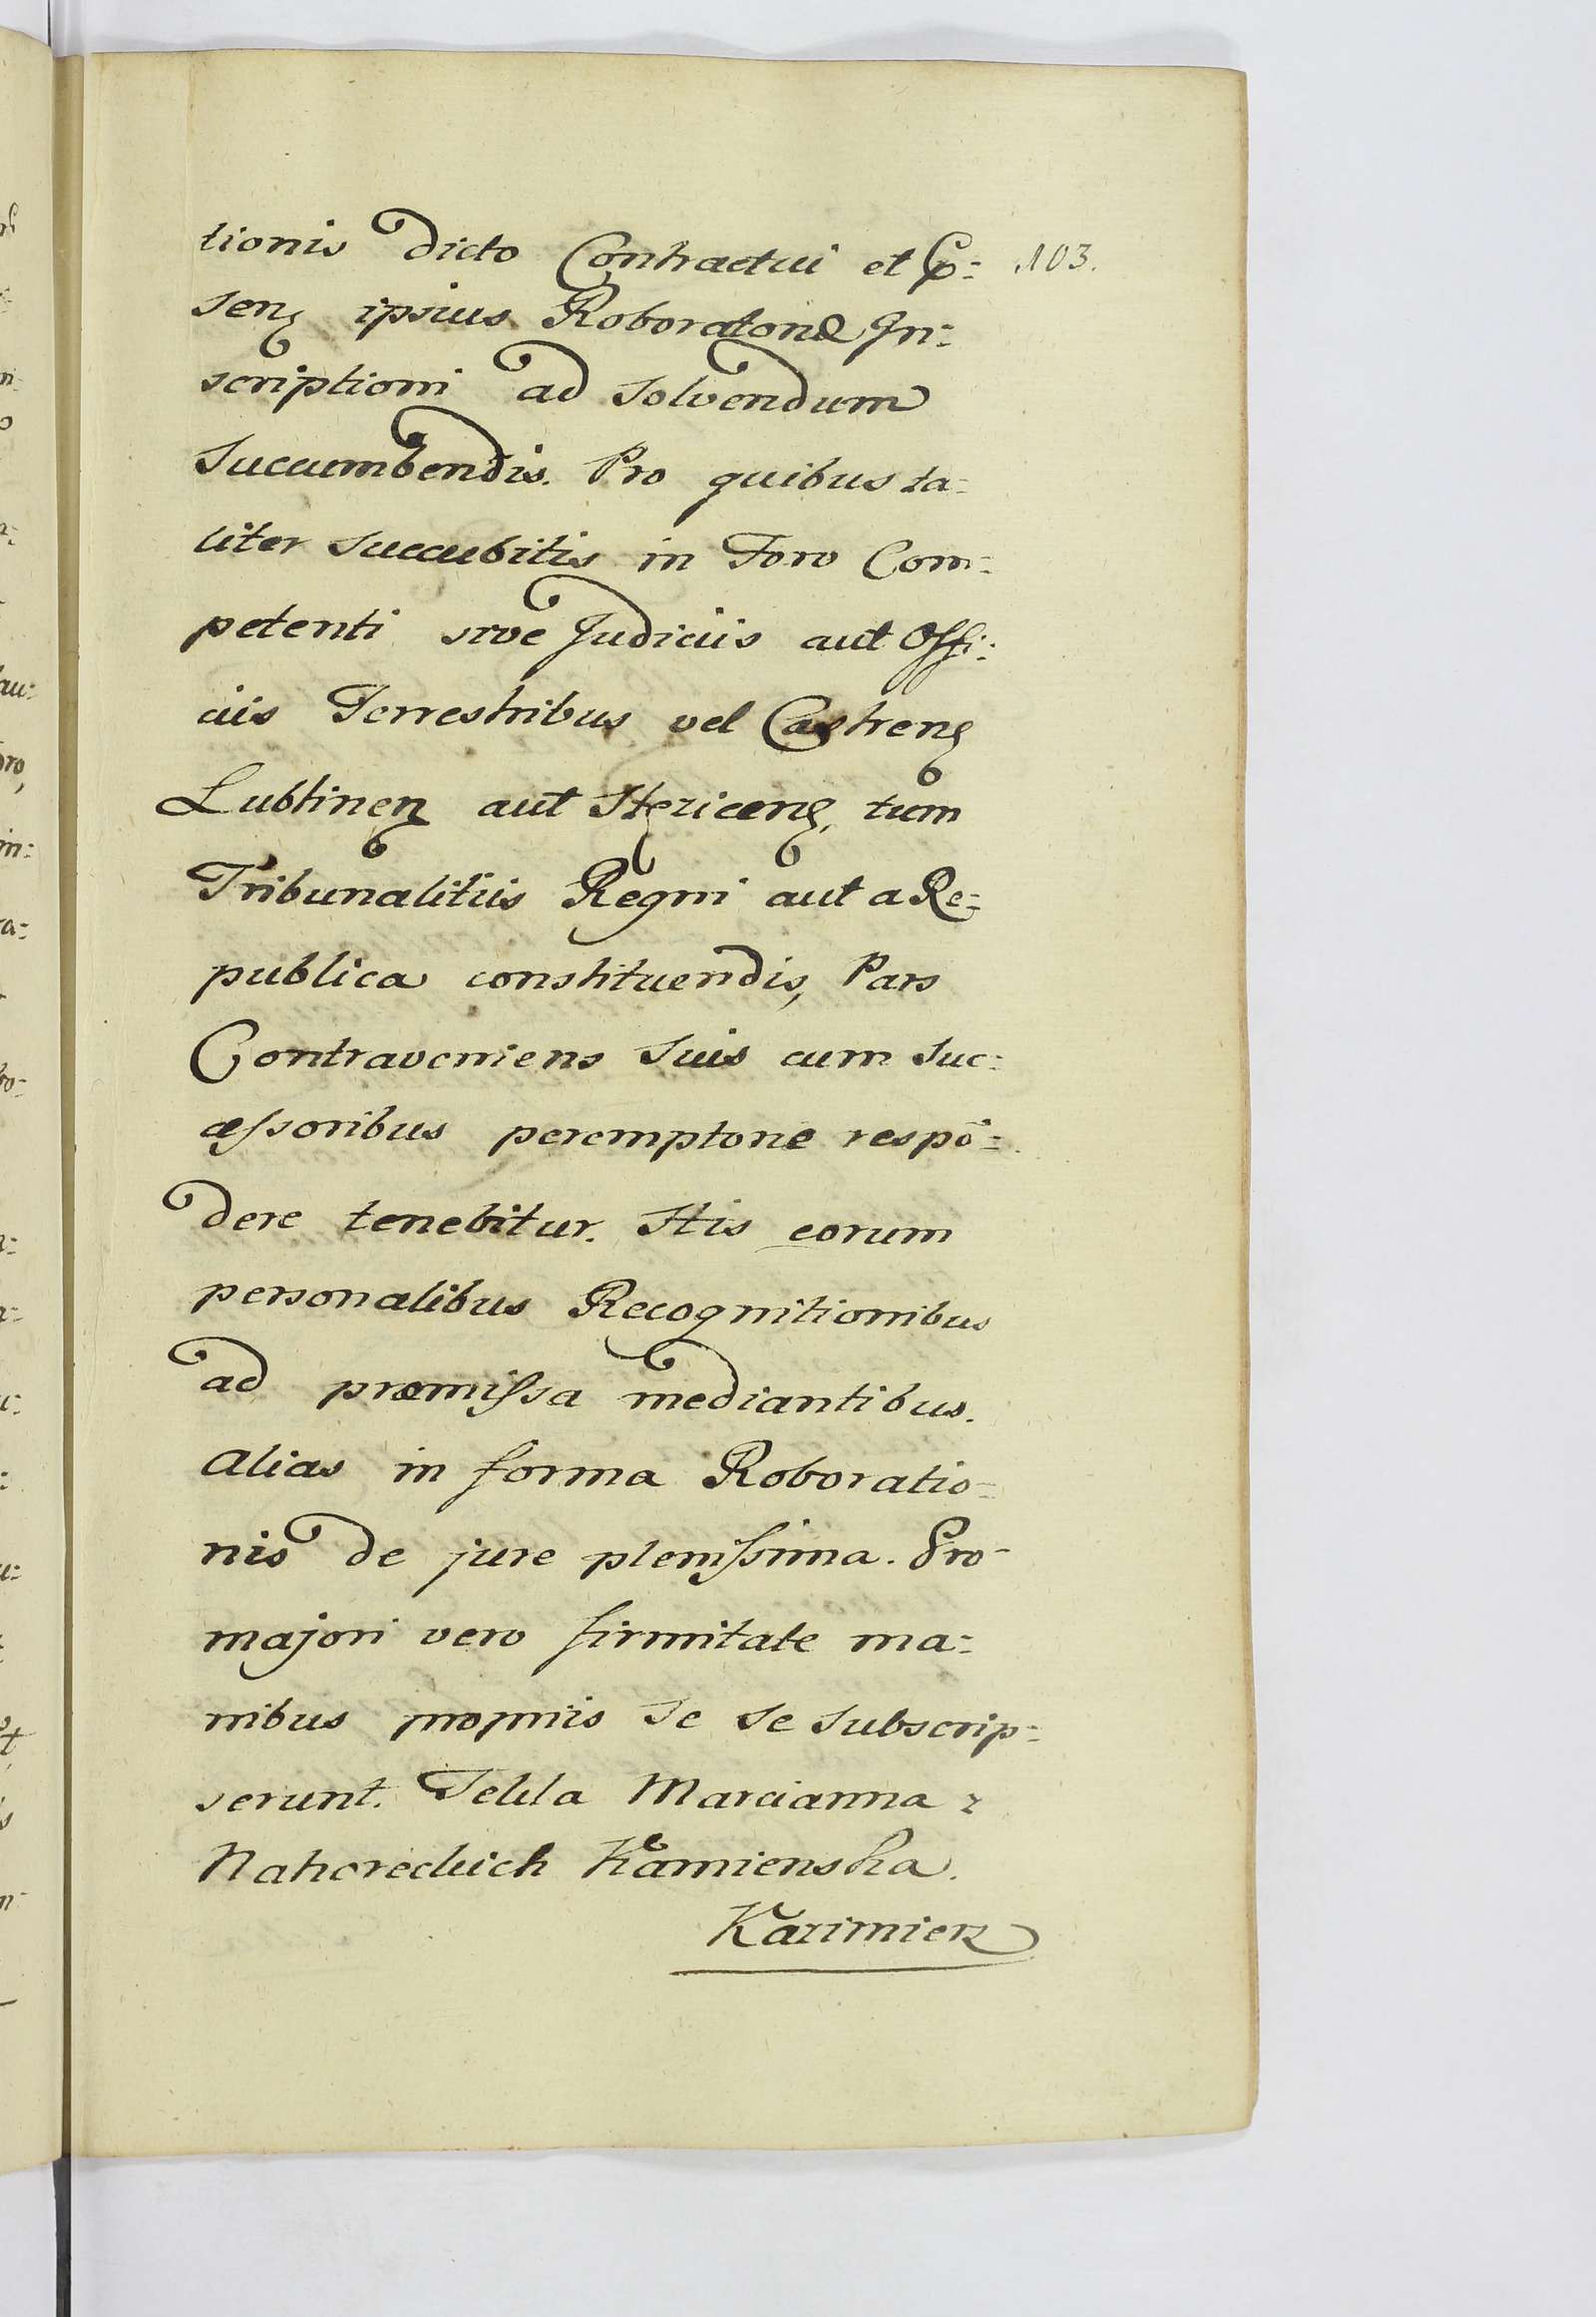 tionis dicto Contractui et Præ=
103.
senz ipsius Roboratoriæ In=
scriptioni ad solvendum
succumbendis. Pro quibus ta=
liter succubitis in Foro Com=
petenti sive Judiciis aut Offi=
ciis Terrestribus vel Castrenz
Lublinenz aut Stezicenz, tum
Tribunalitiis Regni aut a Re=
publica constituendis, Pars
Contraveniens suis cum suc=
cessoribus peremptorie respō=
dere tenebitur. Stis eorum
personalibus Recognitionibus
ad præmissa mediantibus.
Alias in forma Roboratio=
nis de jure plenissima. Pro
majori vero firmitate ma=
nibus propriis se se subscrip=
serunt. Tekla Marcianna z
Nahoreckich Kamienska.
Kazimierz